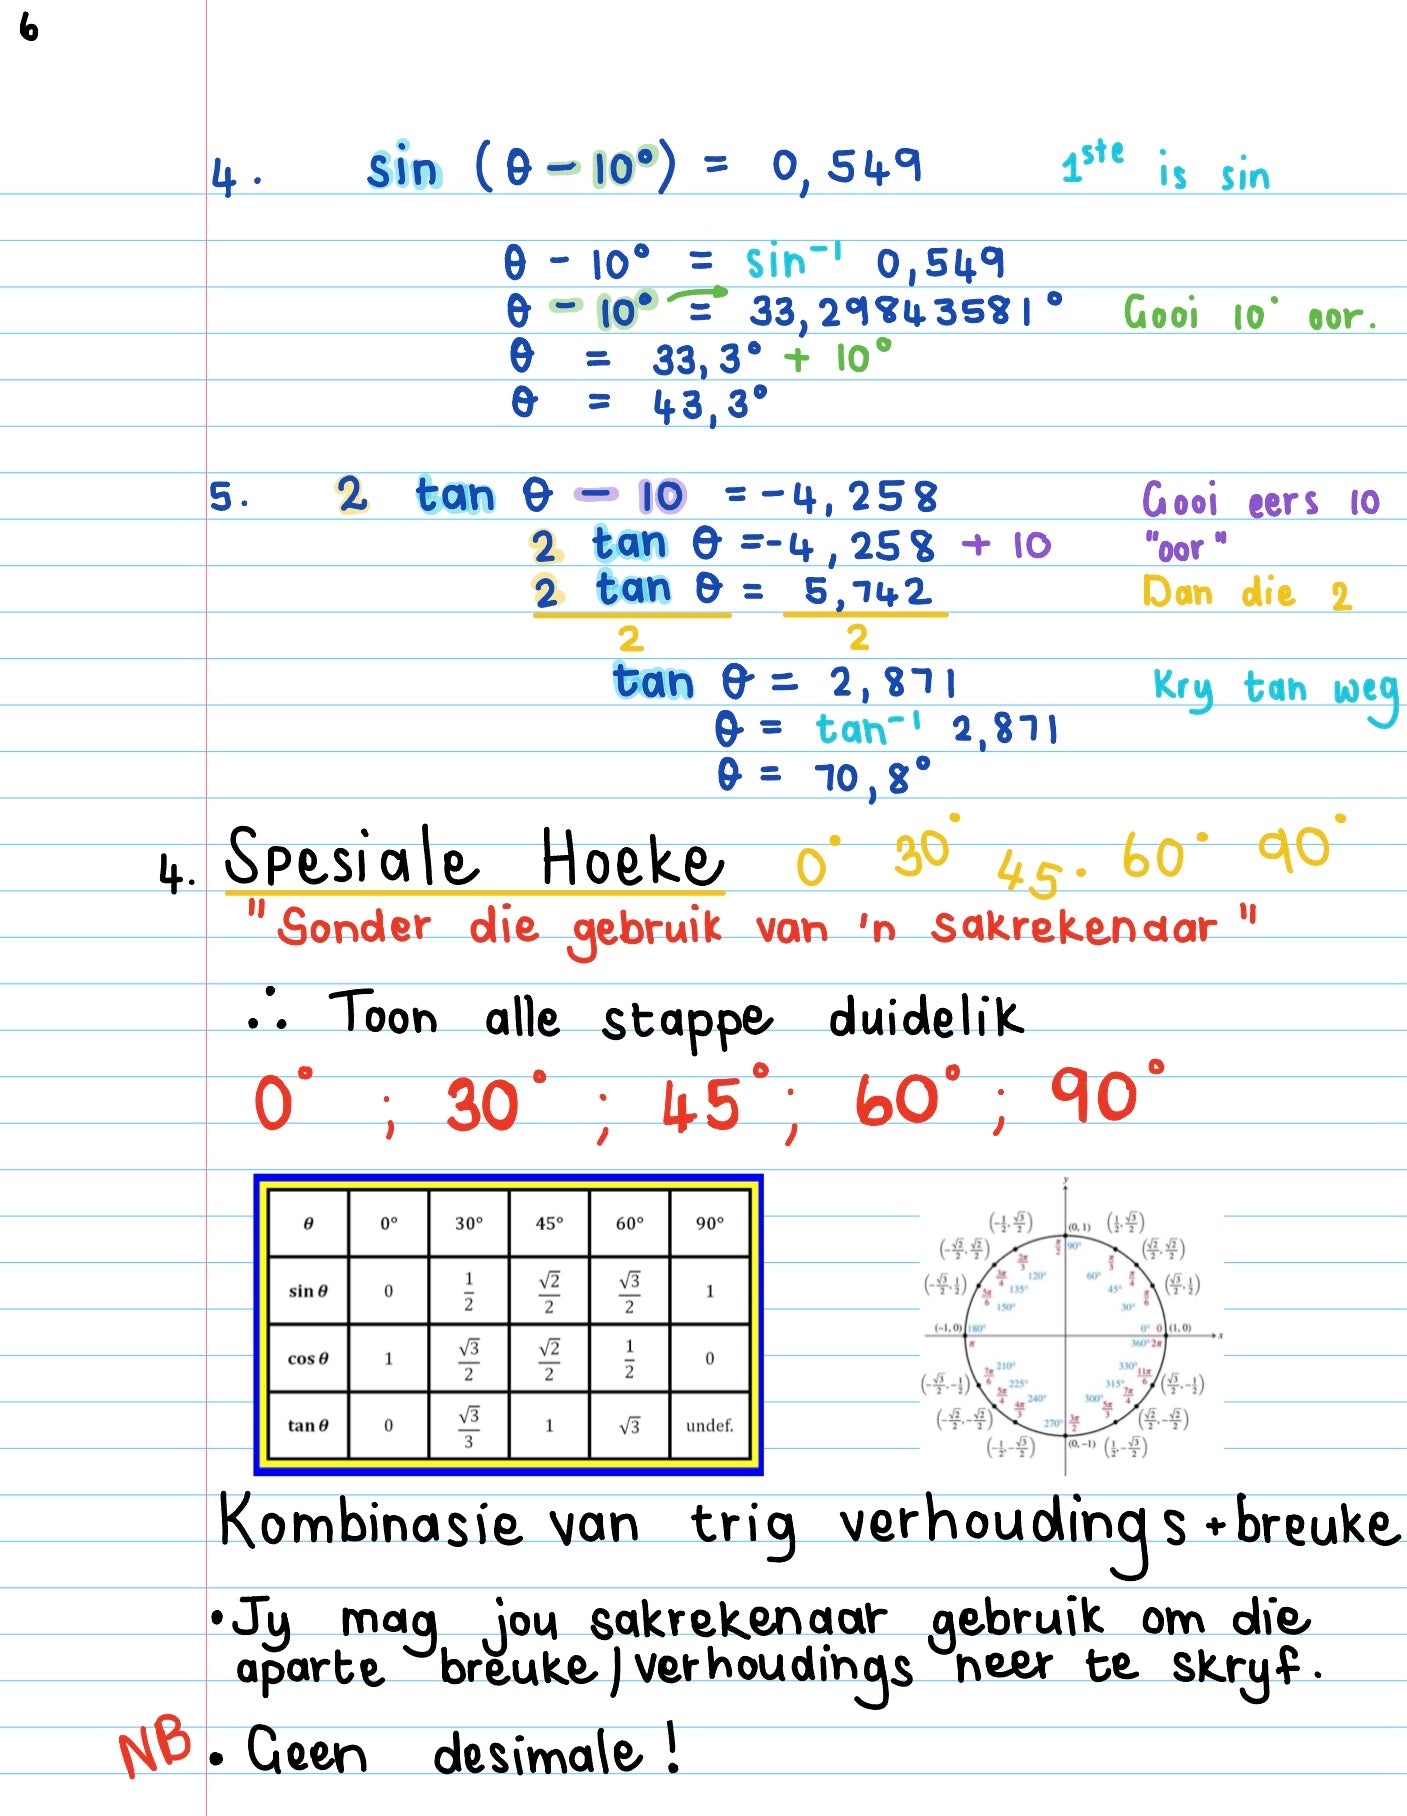 6
4. sin (θ - 10°) = 0,549 1ste is sin
θ - 10° = sin⁻¹ 0,549
θ - 10° = 33,29843581° Gooi 10° oor.
θ = 33,3° + 10°
θ = 43,3°
5. 2 tan θ - 10 = -4,258 Gooi eers 10
2 tan θ = -4,258 + 10 "oor"
2 tan θ = 5,742 Dan die 2
2 2
tan θ = 2,871 Kry tan weg
θ = tan⁻¹ 2,871
θ = 70,8°
4. Spesiale Hoeke 0° 30° 45° 60° 90°
"Sonder die gebruik van 'n sakrekenaar"
∴ Toon alle stappe duidelik
0° ; 30° ; 45° ; 60° ; 90°
θ 0° 30° 45° 60° 90°
sin θ 0 1/2 √2/2 √3/2 1
cos θ 1 √3/2 √2/2 1/2 0
tan θ 0 √3/3 1 √3 undef.
y
(-1/2, √3/2) (0, 1) (1/2, √3/2)
(-√2/2, √2/2) π/2 90° (√2/2, √2/2)
2π/3 120° 60° π/3
(-√3/2, 1/2) 3π/4 135° 45° π/4 (√3/2, 1/2)
5π/6 150° 30° π/6
(-1, 0) 180° 0° 0 (1, 0)
π 360° 2π x
7π/6 210° 330° 11π/6
(-√3/2, -1/2) 225° 315° (√3/2, -1/2)
5π/4 240° 300° 7π/4
(-√2/2, -√2/2) 4π/3 270° 3π/2 5π/3 (√2/2, -√2/2)
(-1/2, -√3/2) (0, -1) (1/2, -√3/2)
Kombinasie van trig verhoudings + breuke
• Jy mag jou sakrekenaar gebruik om die
aparte breuke/verhoudings neer te skryf.
NB • Geen desimale!